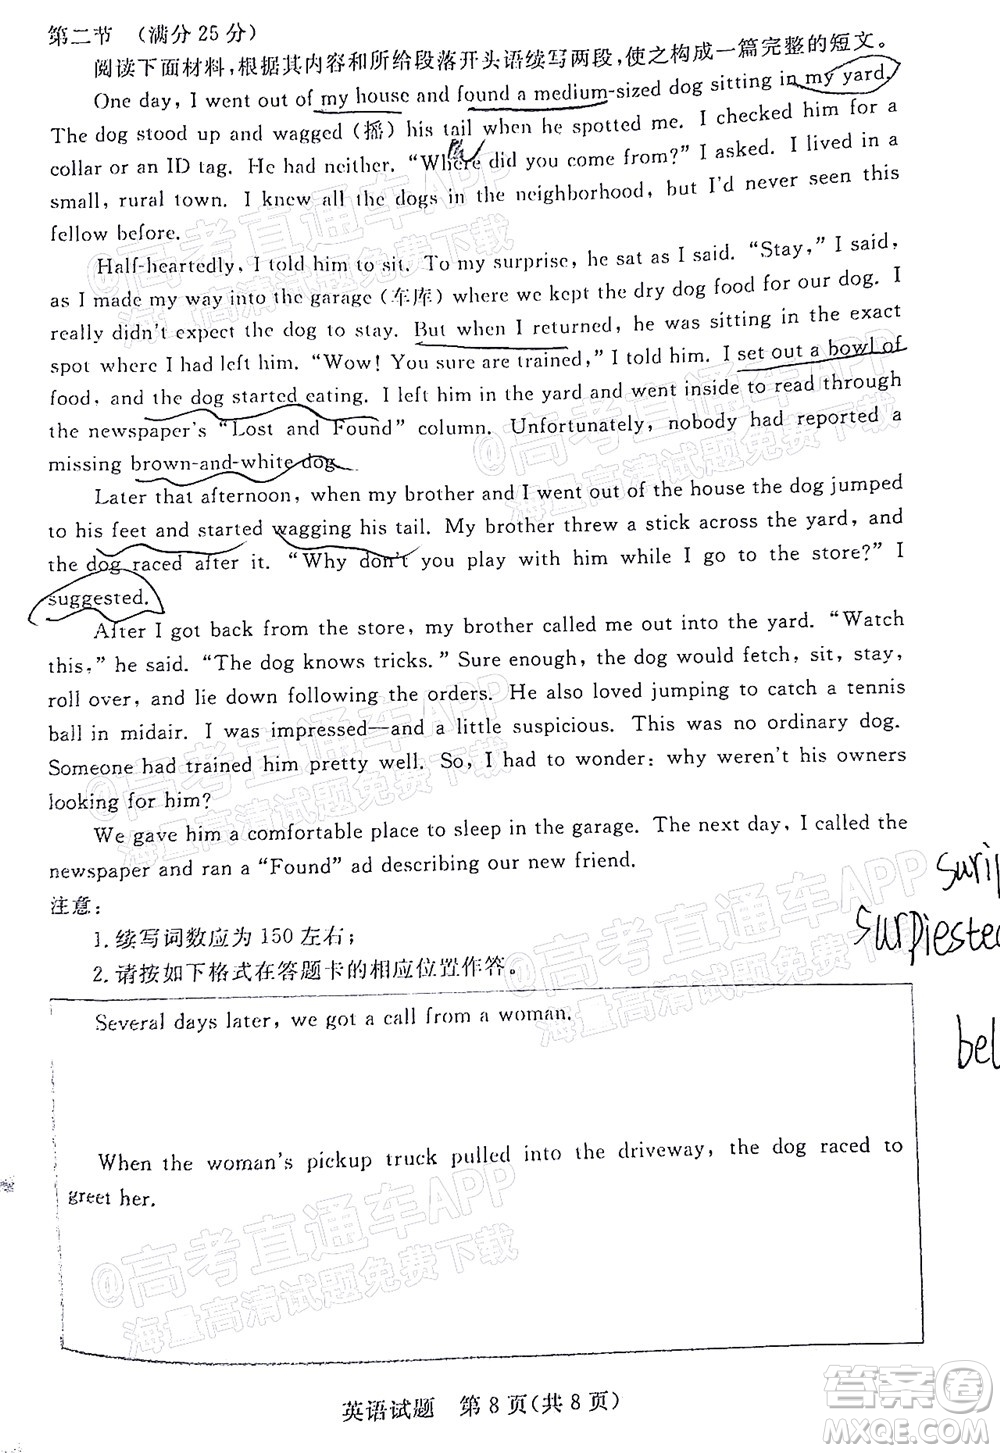 第二节 (满分25分)
阅读下面材料,根据其内容和所给段落开头语续写两段,使之构成一篇完整的短文。
One day, I went out of my house and found a medium-sized dog sitting in my yard.
The dog stood up and wagged (摇) his tail when he spotted me. I checked him for a
collar or an ID tag. He had neither. “Where did you come from?” I asked. I lived in a
small, rural town. I knew all the dogs in the neighborhood, but I'd never seen this
fellow before.
Half-heartedly, I told him to sit. To my surprise, he sat as I said. “Stay,” I said,
as I made my way into the garage (车库) where we kept the dry dog food for our dog. I
really didn't expect the dog to stay. But when I returned, he was sitting in the exact
spot where I had left him. “Wow! You sure are trained,” I told him. I set out a bowl of
food, and the dog started eating. I left him in the yard and went inside to read through
the newspaper's “Lost and Found” column. Unfortunately, nobody had reported a
missing brown-and-white dog.
Later that afternoon, when my brother and I went out of the house the dog jumped
to his feet and started wagging his tail. My brother threw a stick across the yard, and
the dog raced after it. “Why don't you play with him while I go to the store?” I
suggested.
After I got back from the store, my brother called me out into the yard. “Watch
this,” he said. “The dog knows tricks.” Sure enough, the dog would fetch, sit, stay,
roll over, and lie down following the orders. He also loved jumping to catch a tennis
ball in midair. I was impressed—and a little suspicious. This was no ordinary dog.
Someone had trained him pretty well. So, I had to wonder: why weren't his owners
looking for him?
We gave him a comfortable place to sleep in the garage. The next day, I called the
newspaper and ran a “Found” ad describing our new friend.
注意:
1.续写词数应为150左右;
2.请按如下格式在答题卡的相应位置作答。
Several days later, we got a call from a woman.
When the woman's pickup truck pulled into the driveway, the dog raced to
greet her.
英语试题 第8页(共8页)
@高考直通车APP
海量高清试题免费下载
答案圈
MXQE.COM